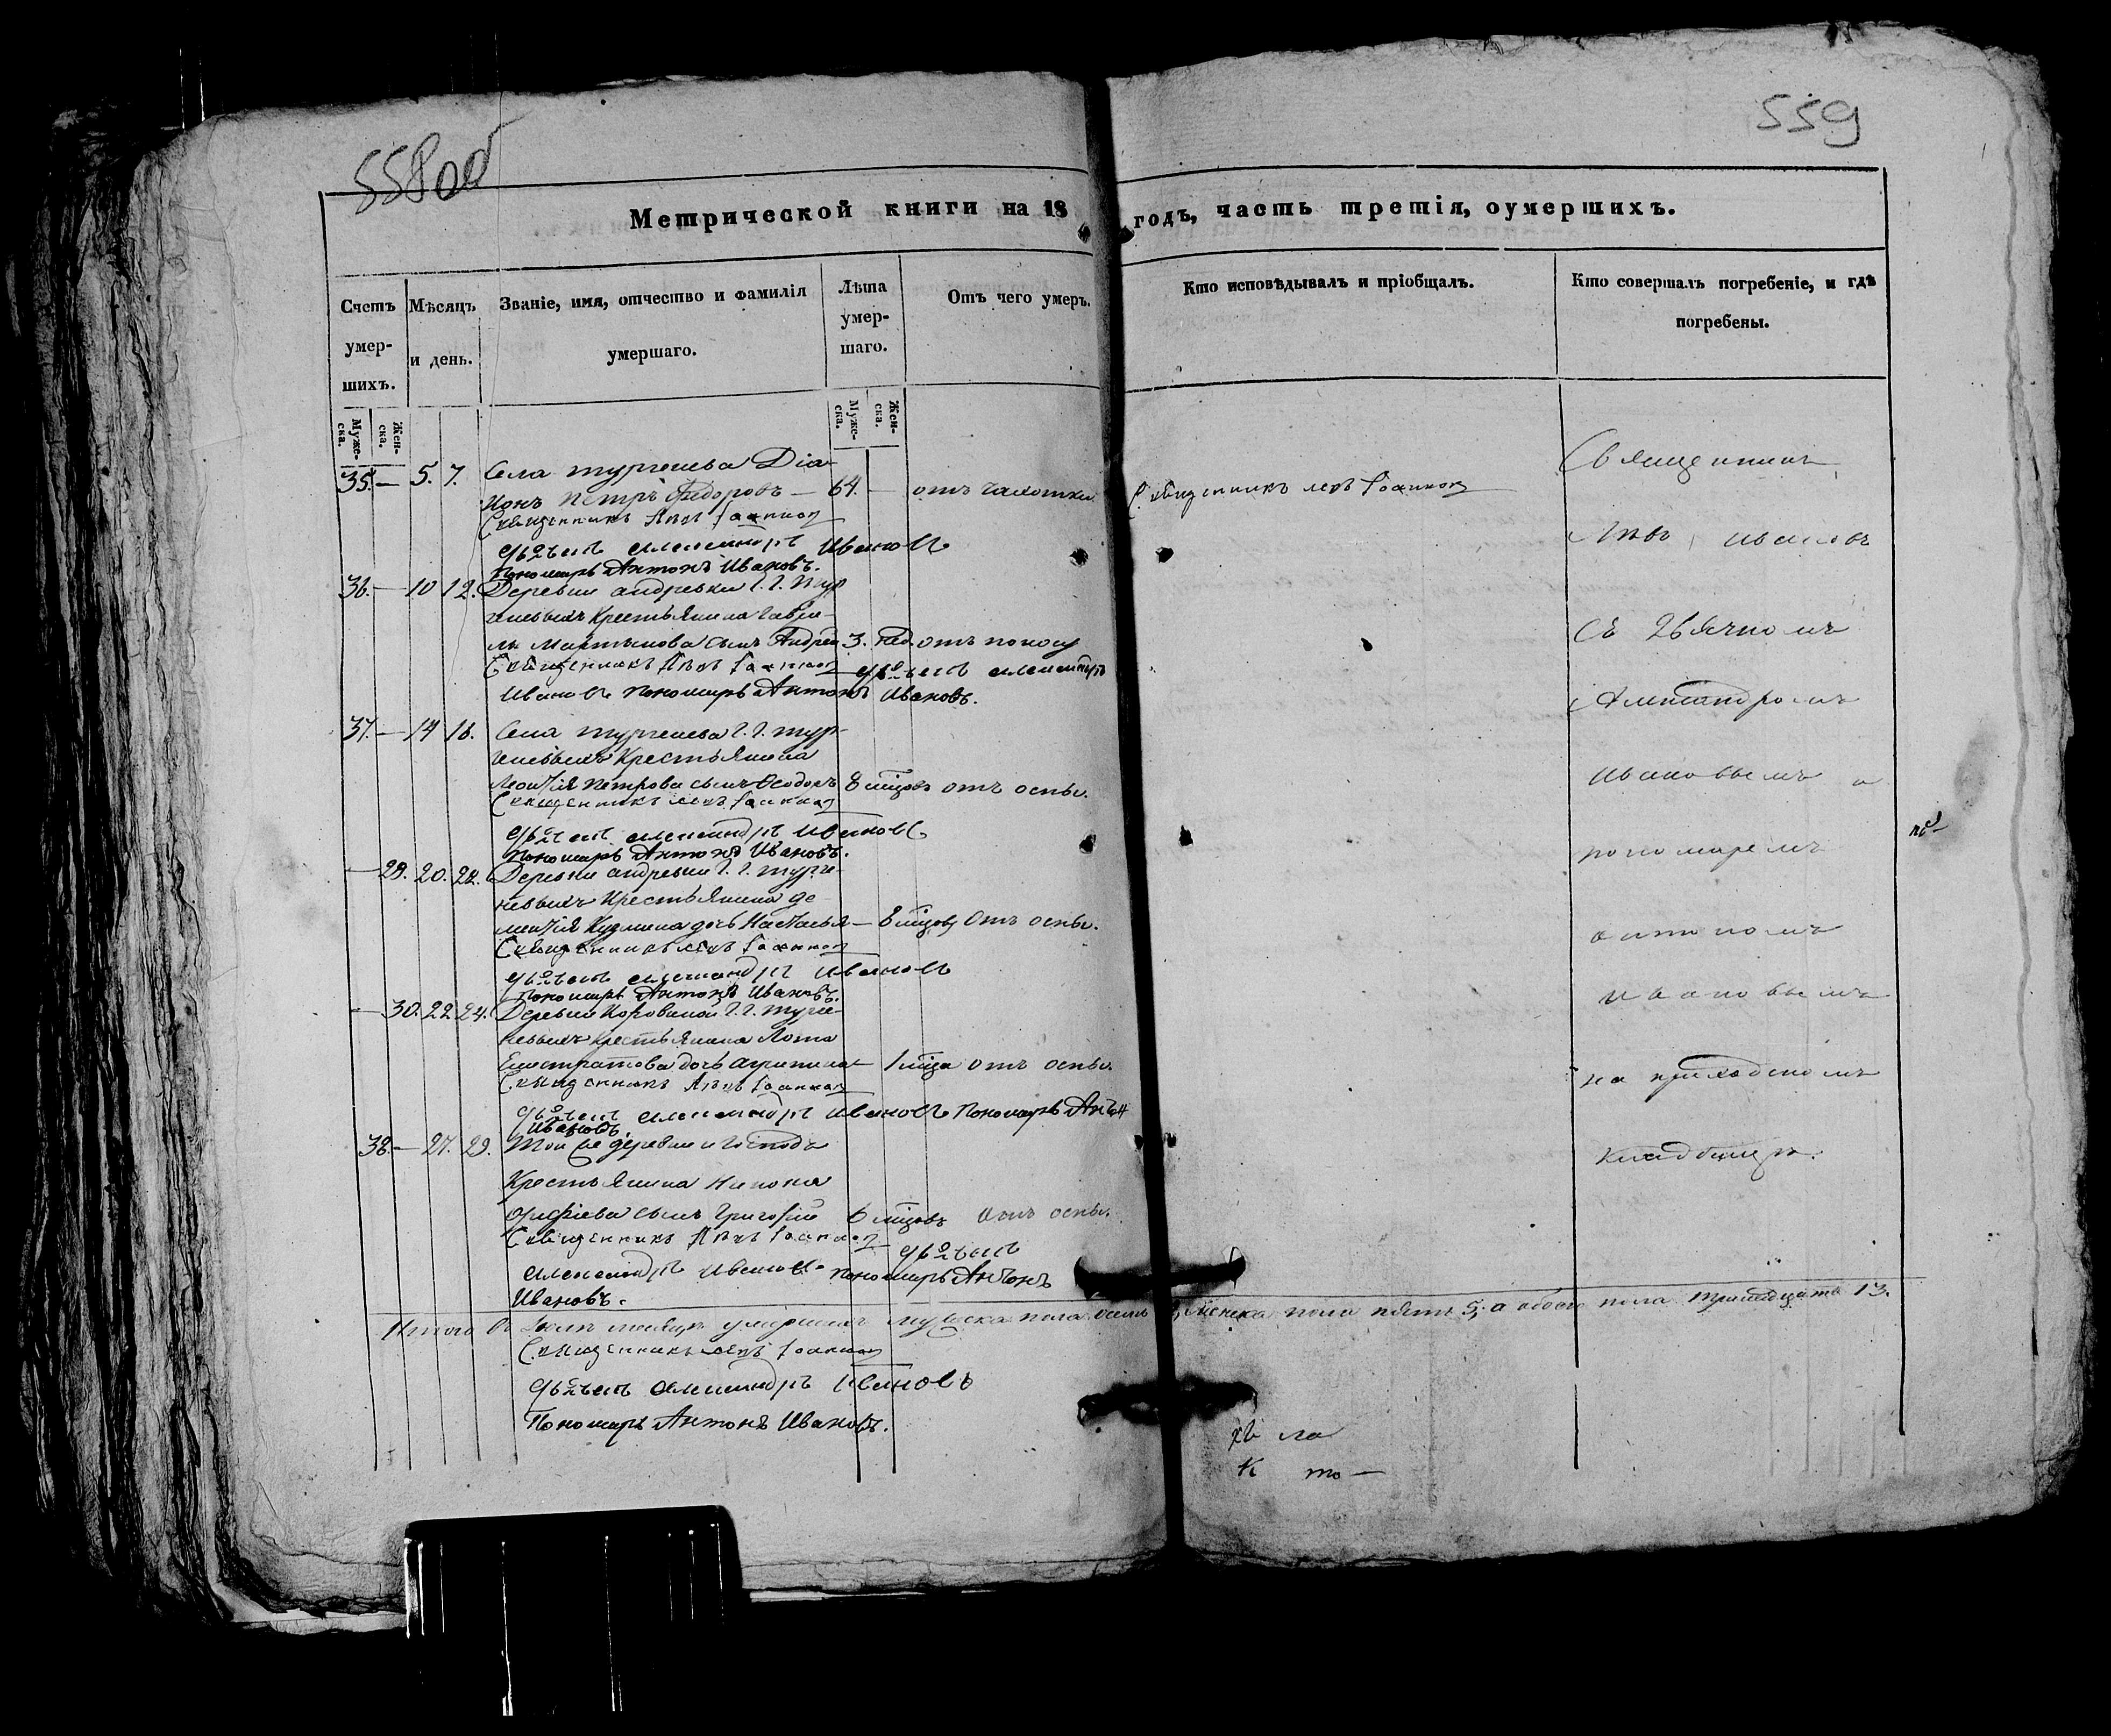 558 об
559
Метрической книги на 18 годъ, часть третія, оумершихъ.
Счетъ умер-шихъ.
Мѣсяцъ и день.
Званіе, имя, отчество и фамилія умершаго.
Лѣта умер-шаго.
Отъ чего умеръ.
Кто исповѣдывалъ и пріобщалъ.
Кто совершалъ погребеніе, и гдѣ погребены.
Муже-ска.
Жен-ска.
Муже-ска.
Жен-ска.
35. — 5. 7. Села тургенева Діа-
конъ Петръ Федоровъ — 64. — отъ чахотки
Священникъ Левъ Іоанновъ
дьячекъ Александръ Ивановъ
Пономарь Антонъ Ивановъ.
36. — 10 12. Деревни андревки Г. Г. Тур
геневыхъ Крестьянина Гаври-
лы Мартынова сынъ Андрей 3. нед. отъ поносу
Священникъ Левъ Іоанновъ дьячекъ Александръ
Ивановъ Пономарь Антонъ Ивановъ.
37. — 14 16. Села тургенева Г. Г. тур-
геневыхъ Крестьянина
Леонтія Петрова сынъ Ѳеодоръ 8 мцовъ отъ оспы.
Священникъ Левъ Іоанновъ
дьячекъ Александръ Ивановъ
Пономарь Антонъ Ивановъ.
— 29. 20. 22. Деревни андревки Г. Г. турге-
невыхъ Крестьянина де-
ментія Кузмина дочь Настасья — 8 мцовъ Отъ оспы.
Священникъ Левъ Іоанновъ
дьячекъ Александръ Ивановъ
Пономарь Антонъ Ивановъ.
— 30. 22. 24. Деревни Коровиной Г. Г. турге-
невыхъ крестьянина
Евстратова дочь агрипина — 1 мца отъ оспы.
Священникъ Левъ Іоанновъ
дьячекъ Александръ Ивановъ Пономарь Антон
Ивановъ.
38. — 27. 29. Той же деревни и Господъ
Крестьянина
сынъ Григорій 6 мцовъ отъ оспы.
Священникъ Левъ Іоанновъ дьячекъ
Александръ Ивановъ Пономарь Антонъ
Ивановъ.
Итого въ мѣсяцѣ умершихъ мужеска пола осмь женска пола пять 5, а обоего пола тринадцать 13.
Священникъ Левъ Іоанновъ
дьячекъ Александръ Ивановъ
Пономарь Антонъ Ивановъ.
Священникъ левъ Іоанновъ
Священникъ
Левъ Ивановъ
съ дьячкомъ
Александромъ
Ивановымъ и
пономаремъ
антономъ
ивановымъ
на приходскомъ
кладбищѣ.